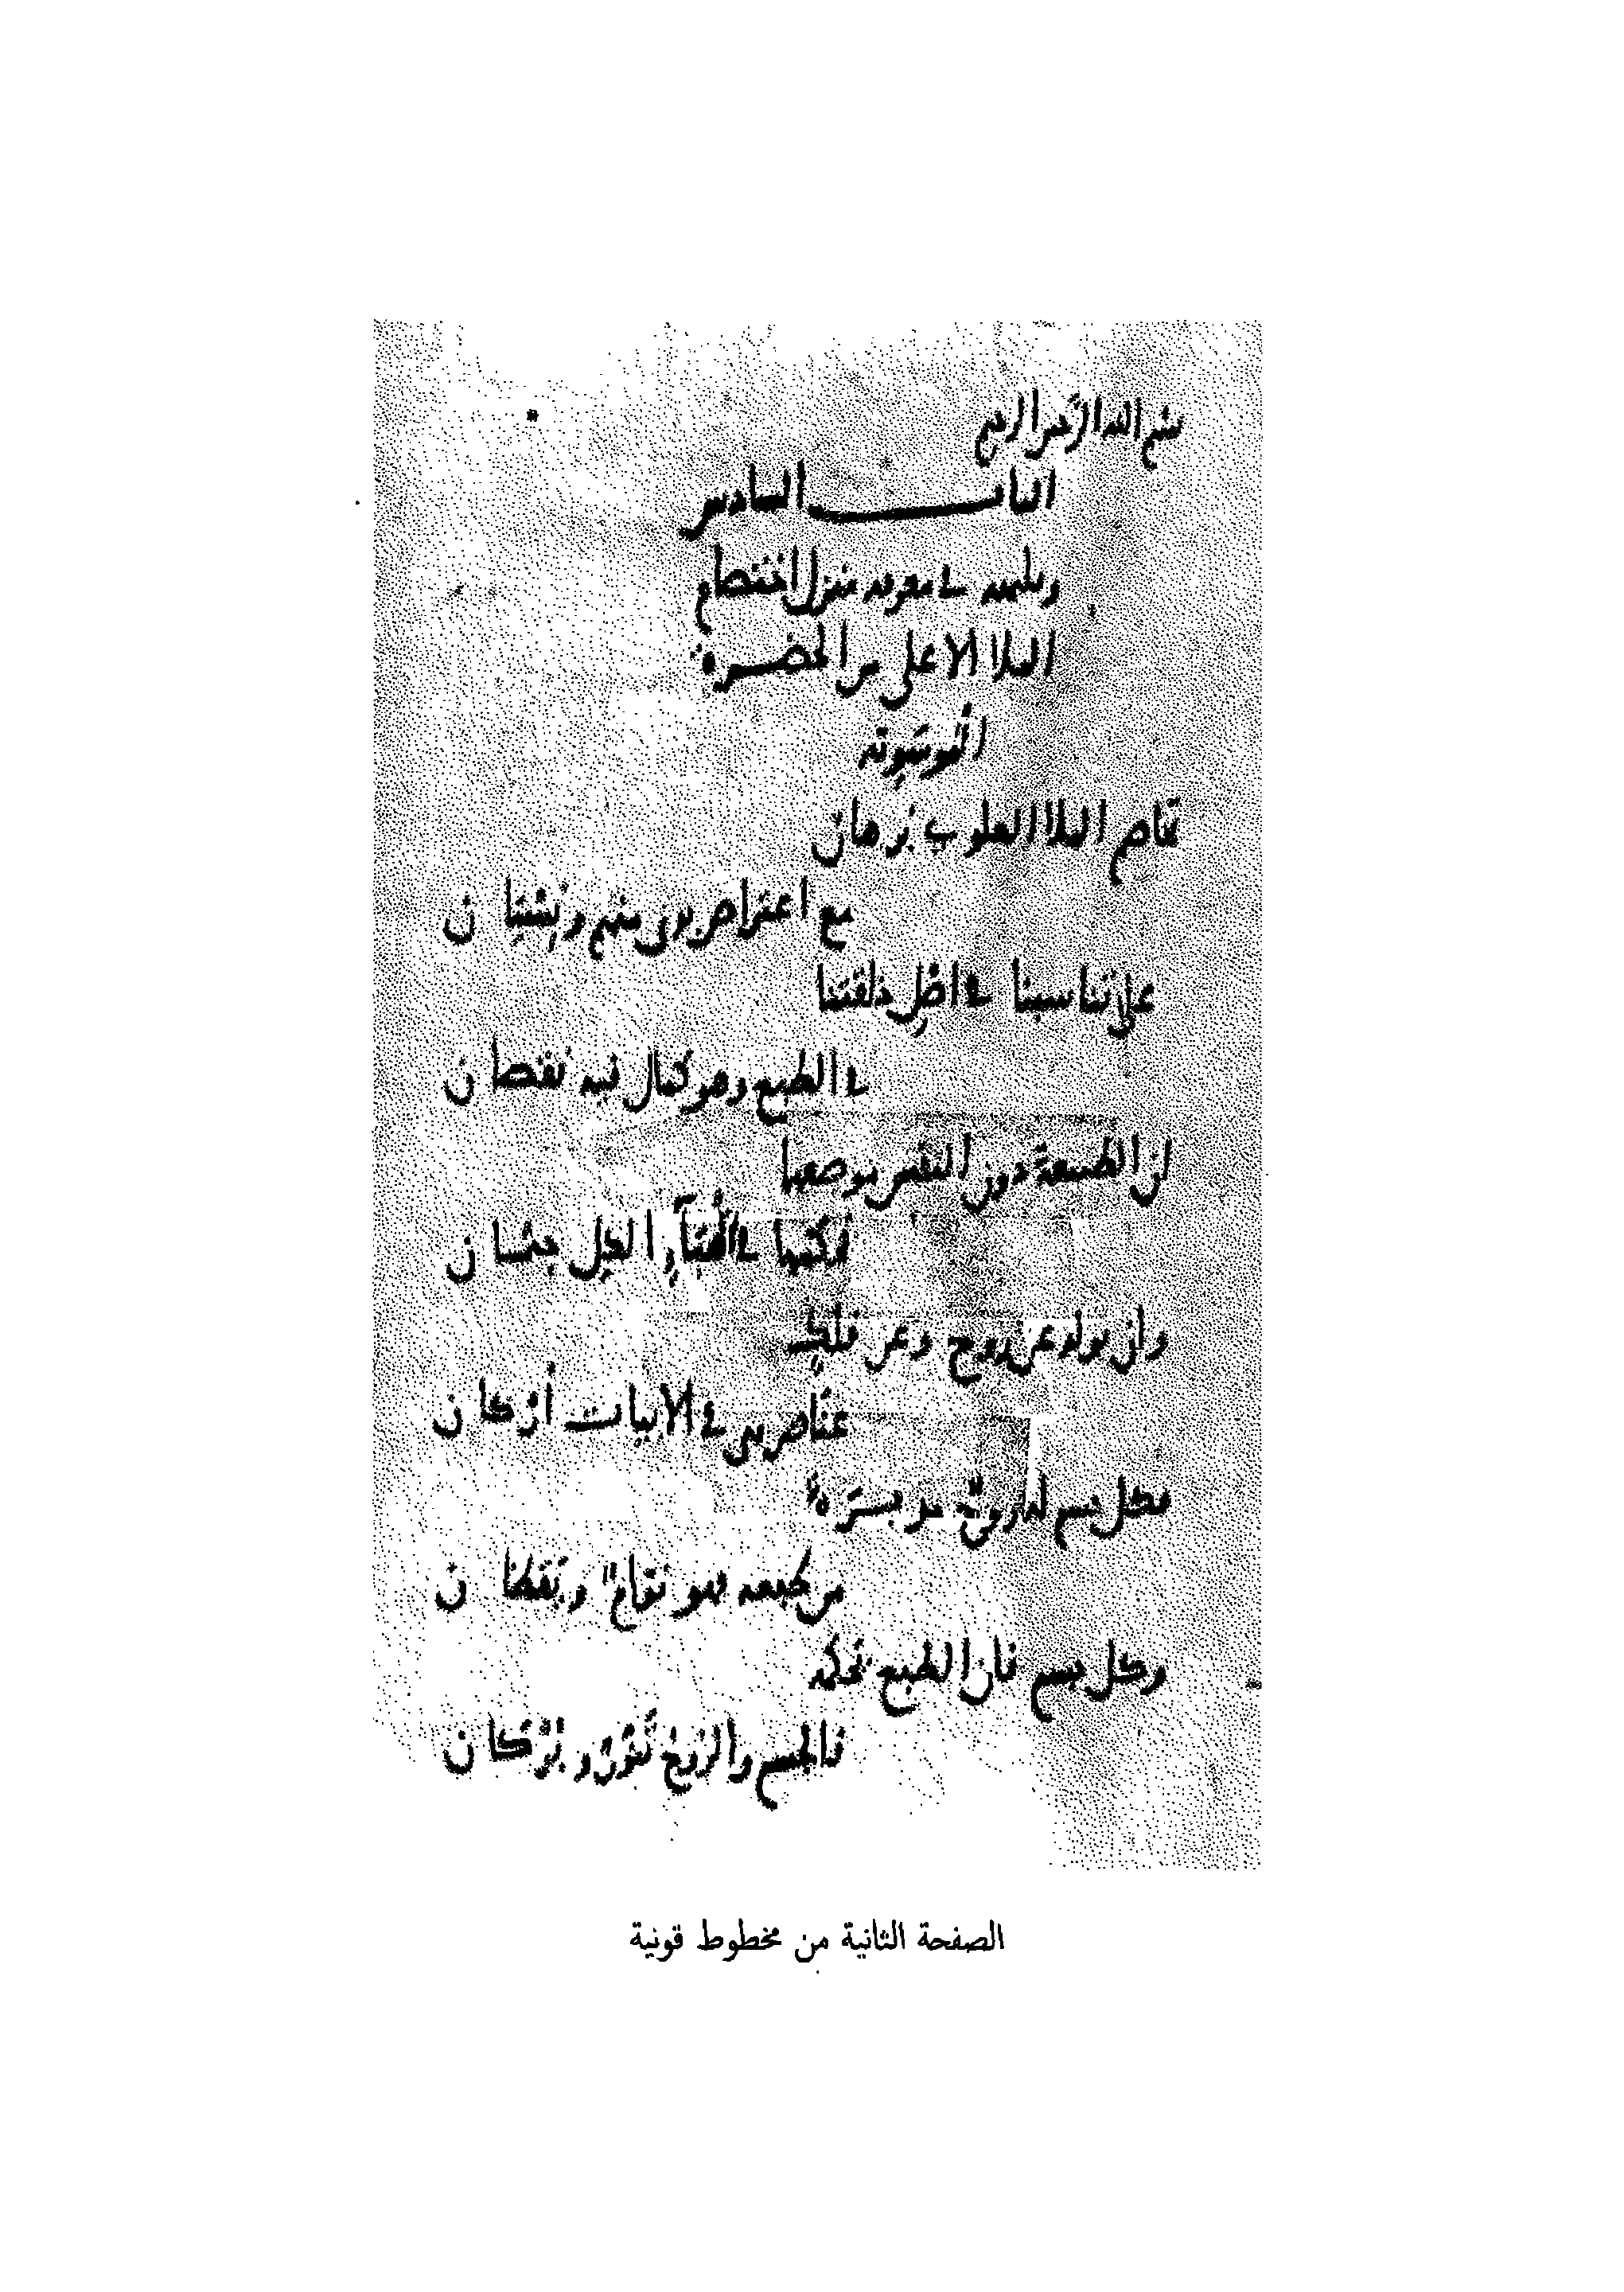 بسم الله الرحمن الرحيم
الباب السادس
وثلثمايه في معرفه منزل اختصام
الملا الاعلى من الحضرة
الموسويه
تخاصم الملا العلوي برهان
مع اعتراض بدى منهم ونشيان
على تناسبنا في اصل خلقتنا
في الطبع وهو كمال فيه نقصان
لن الطبيعة دون النفس موضعها
فحكمها في الهباء الكل جثمان
وان تولد عن روح وعن فلك
عناصر هي في الابيات أركان
فكل جسم له روح مدبرة
من طبعه فهو نوام ويقظان
وكل جسم فان الطبع يحكمه
فالجسم والروح تنور وبركان
الصفحة الثانية من مخطوط قونية